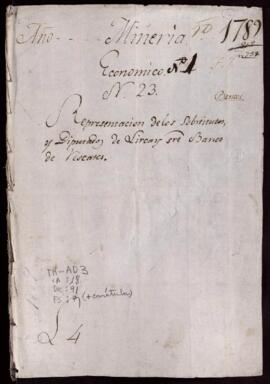 Año Mineria 1789
Economico. N. 4
N. 23.
Representacion de los Sobstitutos,
y Diputados de Lircay sre Banco
de Rescates.
TR-AD3
DC: 91
(+ carátula)
L 4